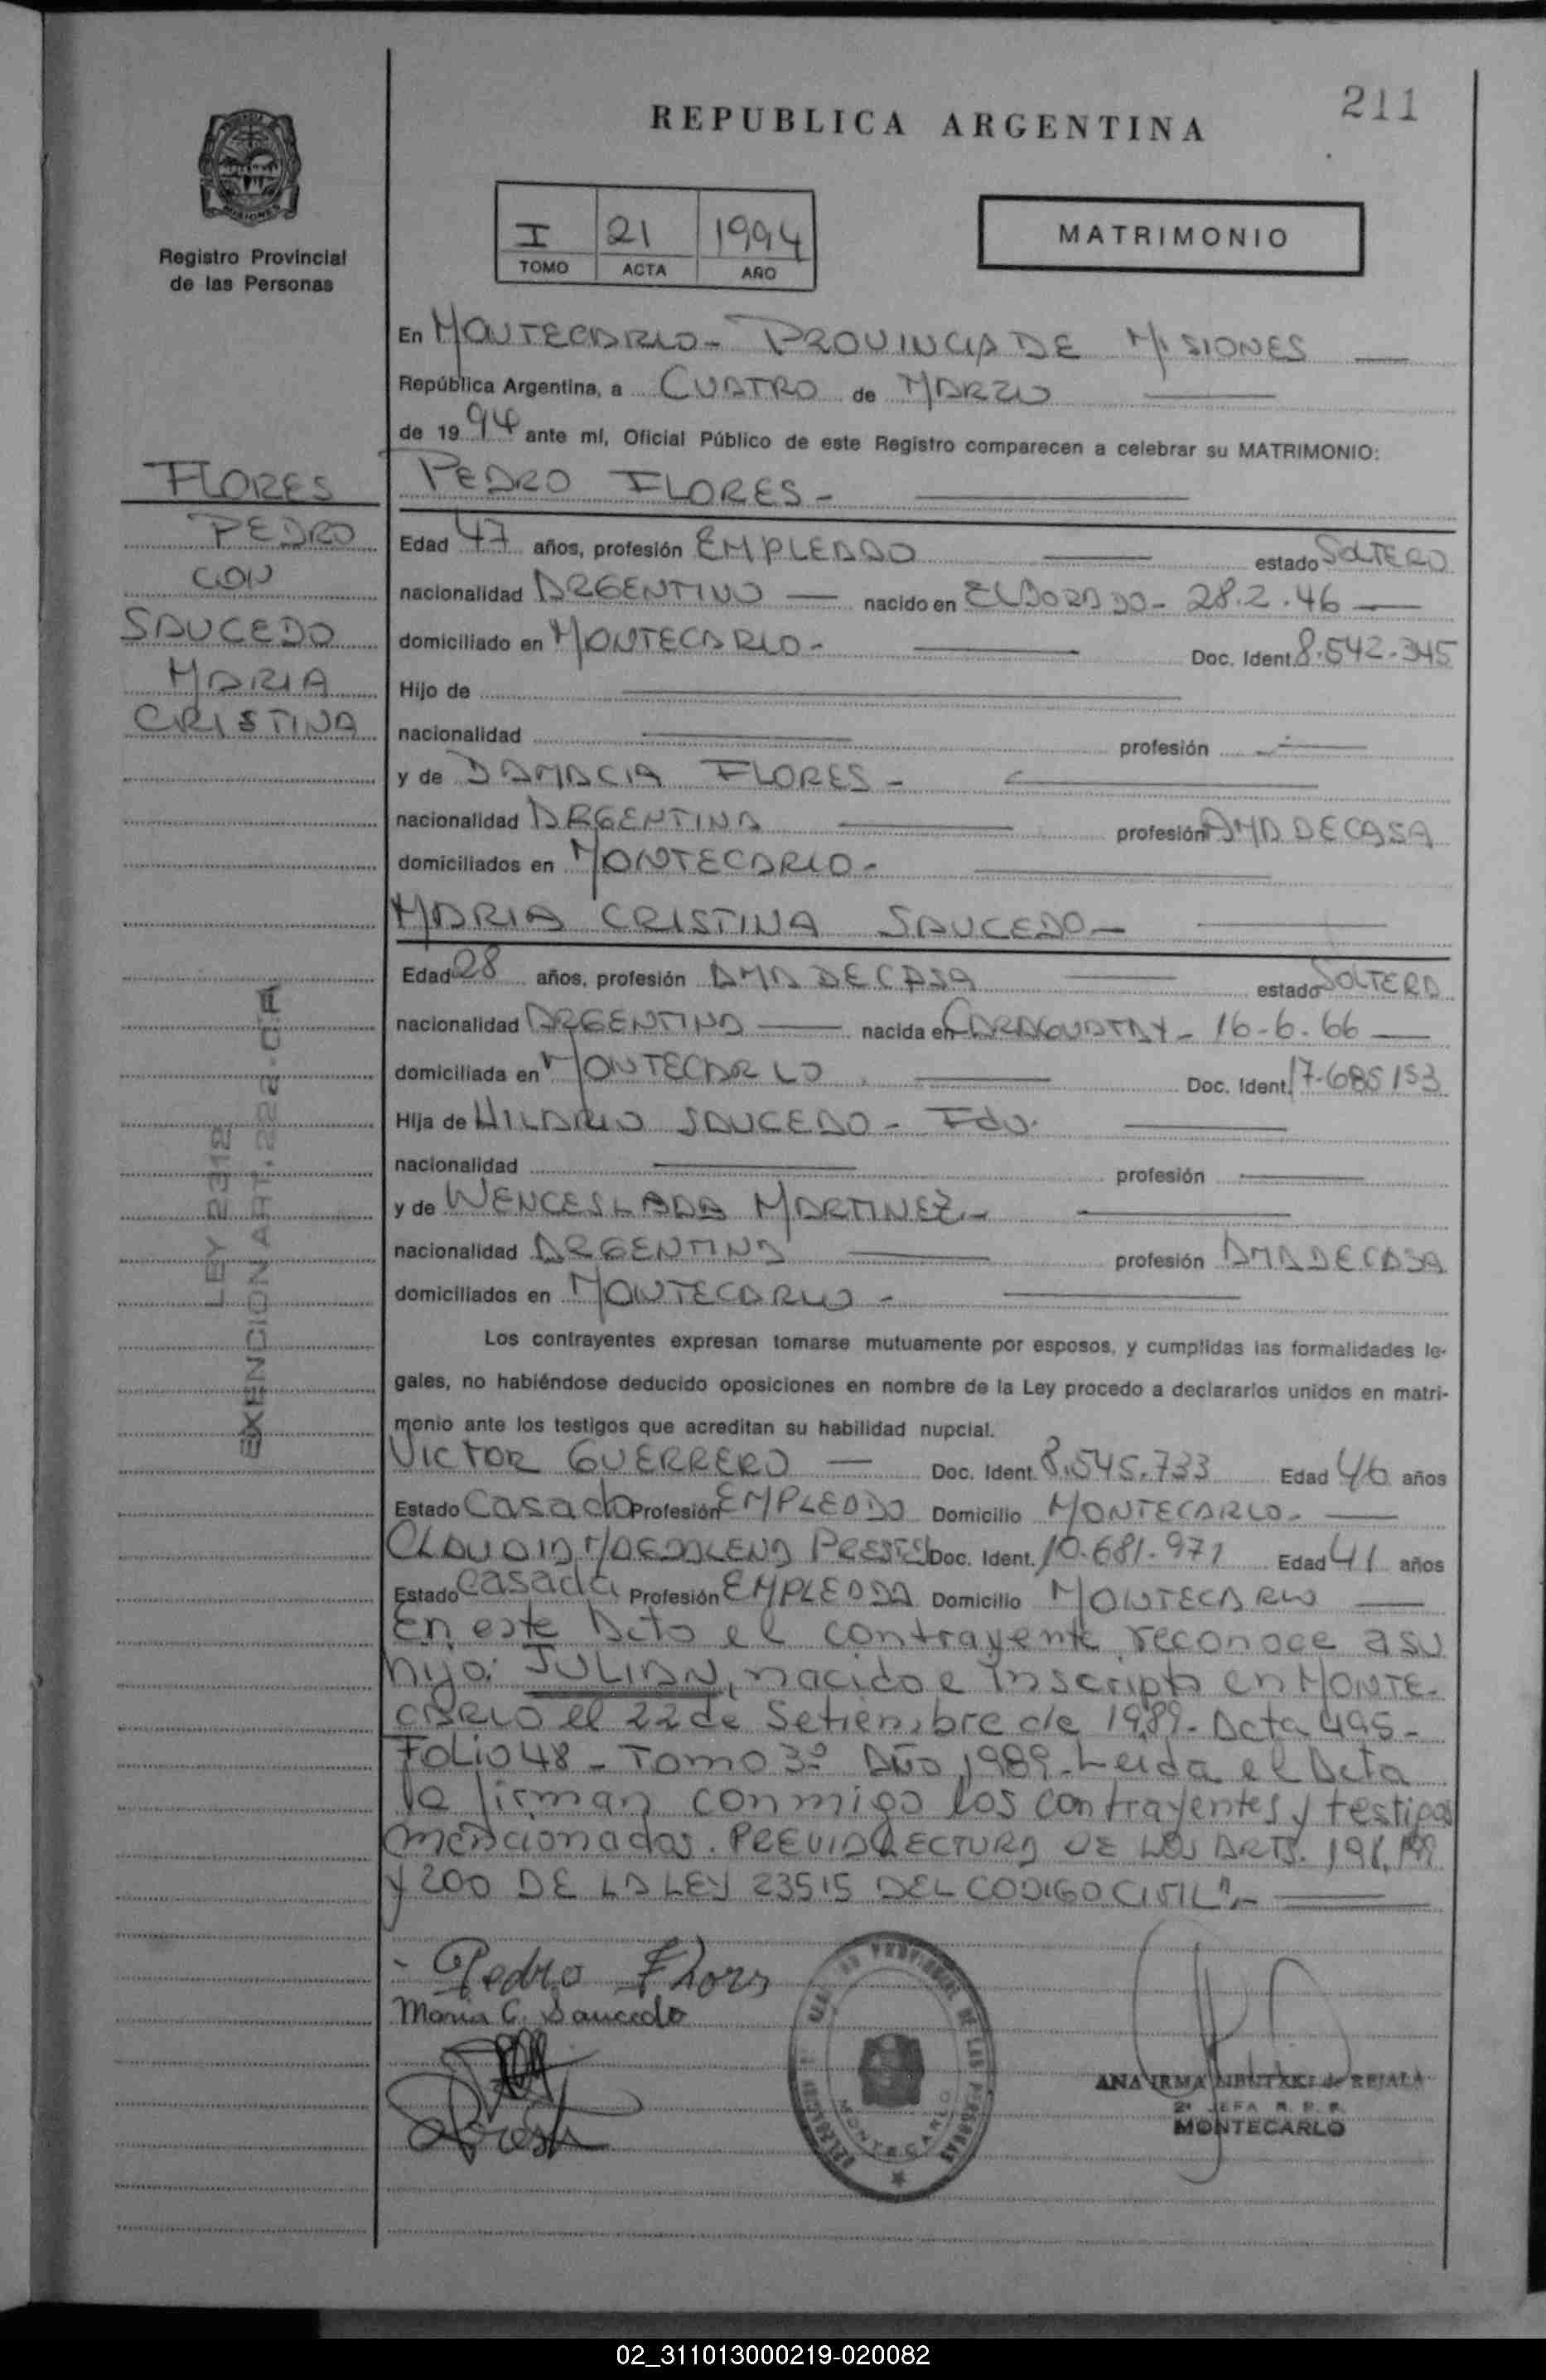 211
REPUBLICA ARGENTINA
MISIONES
Registro Provincial
de las Personas
I 21 1994
TOMO ACTA AÑO
MATRIMONIO
En MONTECARLO- PROVINCIA DE MISIONES
República Argentina, a CUATRO de MARZO
de 1994 ante mí, Oficial Público de este Registro comparecen a celebrar su MATRIMONIO:
FLORES
PEDRO
CON
SAUCEDO
MARIA
CRISTINA
PEDRO FLORES-
Edad 47 años, profesión EMPLEADO estado SOLTERO
nacionalidad ARGENTINO nacido en ELDORADO- 28.2.46
domiciliado en MONTECARLO- Doc. Ident. 8.542.345
Hijo de
nacionalidad profesión
y de DAMACIA FLORES-
nacionalidad ARGENTINA profesión AMA DE CASA
domiciliados en MONTECARLO-
MARIA CRISTINA SAUCEDO-
Edad 28 años, profesión AMA DE CASA estado SOLTERA
nacionalidad ARGENTINA nacida en CARAGUATAY- 16-6-66
domiciliada en MONTECARLO Doc. Ident. 17.685153
Hija de HILARIO SAUCEDO- Fdo.
nacionalidad profesión
y de WENCESLADA MARTINEZ.-
nacionalidad ARGENTINA profesión AMA DE CASA
domiciliados en MONTECARLO-
LEY 2312
EXENCION ART. 222-C.F.A
Los contrayentes expresan tomarse mutuamente por esposos, y cumplidas las formalidades le-
gales, no habiéndose deducido oposiciones en nombre de la Ley procedo a declararlos unidos en matri-
monio ante los testigos que acreditan su habilidad nupcial.
VICTOR GUERRERO Doc. Ident. 8.545.733 Edad 46 años
Estado Casado Profesión EMPLEADO Domicilio MONTECARLO-
CLAUDIA MAGDALENA PRESTES Doc. Ident. 10.681.971 Edad 41 años
Estado Casada Profesión EMPLEADA Domicilio MONTECARLO
En este Acto el contrayente reconoce a su
hijo: JULIAN, nacido e inscripto en MONTE-
CARLO el 22 de Setiembre de 1989- Acta 495-
FOLIO 48- Tomo 3º Año 1989- Leida el Acta
la firman conmigo los contrayentes y testigos
mencionados. PREVIA LECTURA DE LOS ARTS. 198, 199
Y 200 DE LA LEY 23515 DEL CODIGO CIVIL".-
- Pedro Flors
Maria C. Saucedo
MONTECARLO
ANA IRMA de REJALA
2ª JEFA R. P. P.
MONTECARLO
02_311013000219-020082